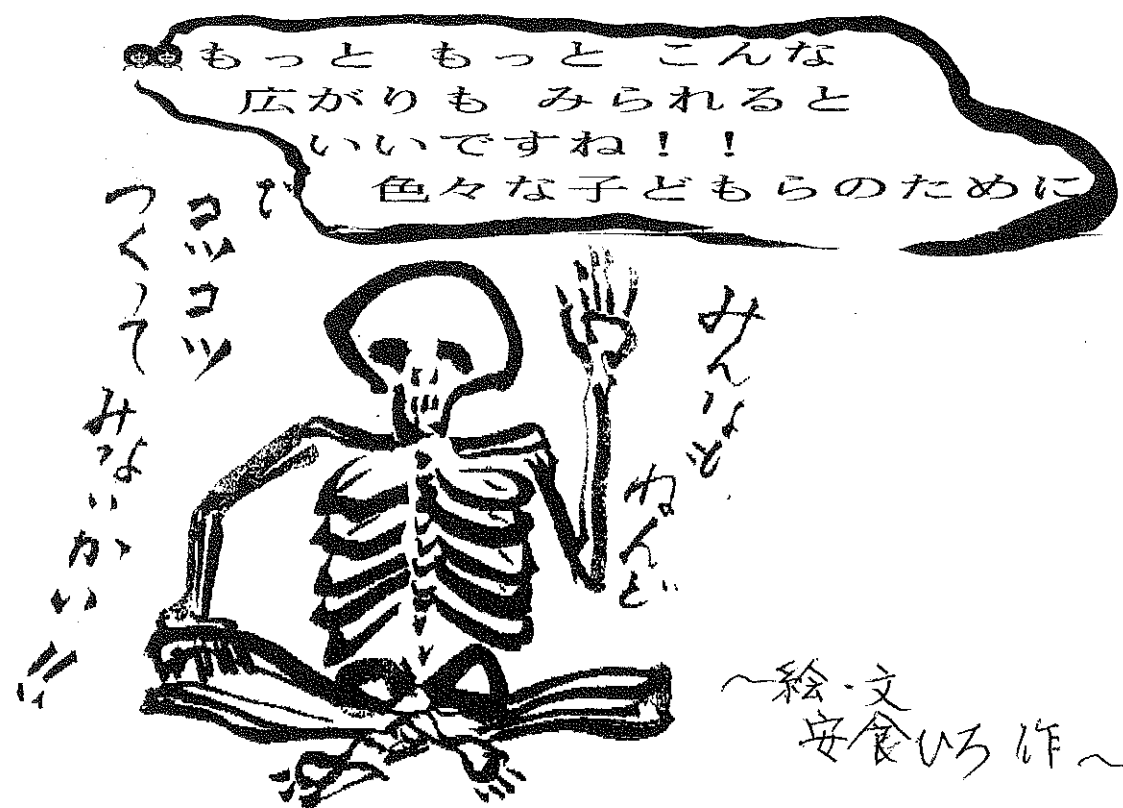 もっと もっと こんな
広がりも みられると
いいですね！！
色々な子どもらのために
みんなと
ねんど
で
コツコツ
つくって
みないかい!!
～絵・文
安食ひろ 作～